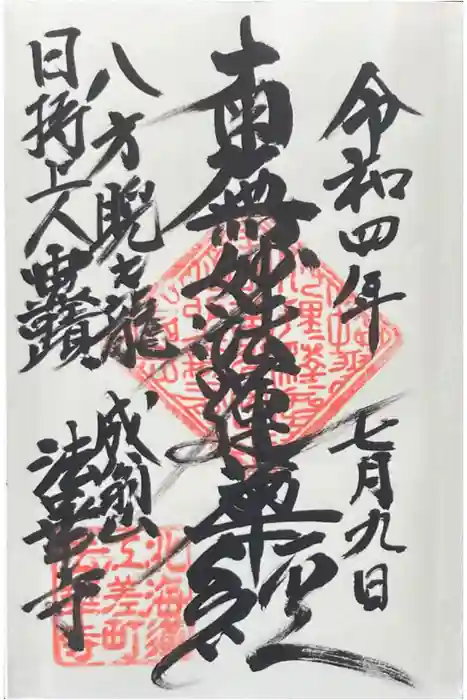 令和四年
七月九日
南無妙法蓮華経
八方睨之龍
日持上人霊蹟
成翁山
法華寺
北海道
江差町
法華寺